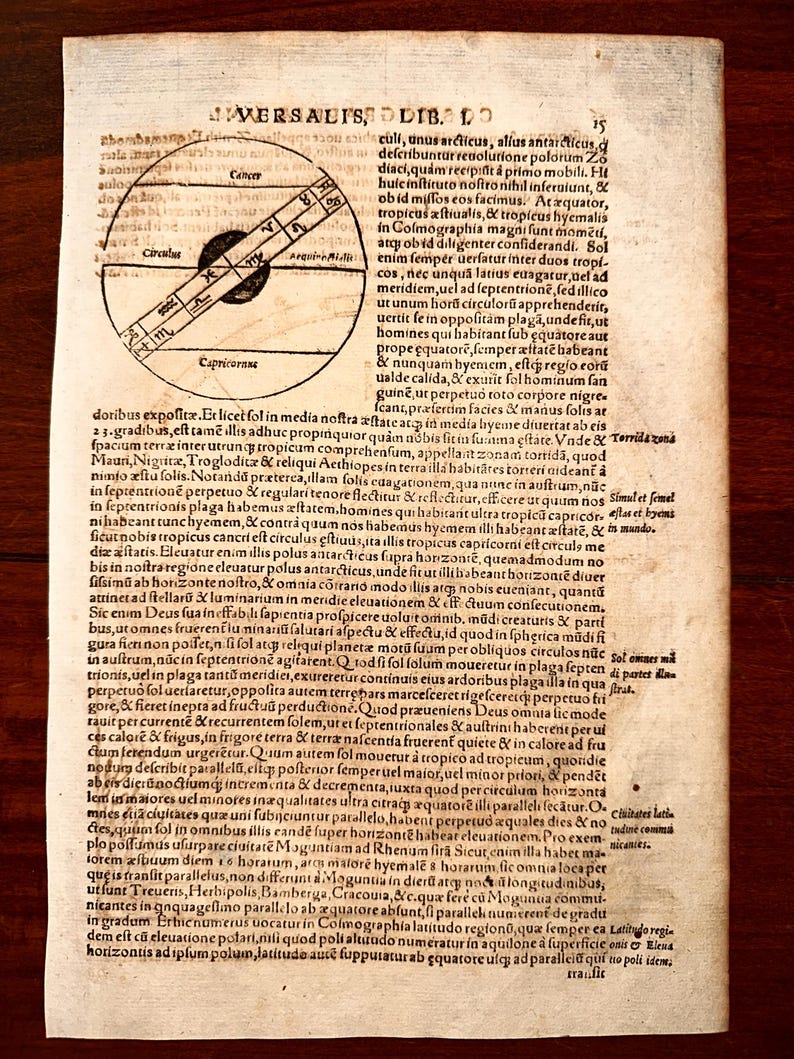 VERSALIS, LIB. I.
15
Cancer
Circulus
Aequinoctialis
Capricornus
culi, unus arcticus, alius antarcticus, q
describuntur reuolutione polorum Zo
diaci, quam recipiũt à primo mobili. Hi
huic instituto nostro nihil inseruiunt, &
ob id missos eos facimus. At æquator,
tropicus æstiualis, & tropicus hyemalis
in Cosmographia magni sunt momẽti,
atq; ob id diligenter considerandi. Sol
enim semper uersatur inter duos tropi-
cos, nec unquã latius euagatur, uel ad
meridiem, uel ad septentrionẽ, sed illico
ut unum horũ circulorũ apprehenderit,
uertit se in oppositam plagã, unde fit, ut
homines qui habitant sub ęquatore aut
prope ęquatorẽ, semper æstatẽ habeant
& nunquam hyemem, estq; regio eorũ
ualde calida, & exurit sol hominum san
guinẽ, ut perpetuò toto corpore nigre-
scant, præsertim facies & manus solis ar
doribus expositæ. Et licet sol in media nostra æstate atq; in media hyeme diuertat ab eis
23. gradibus, est tamẽ illis adhuc propinquior quàm nobis sit in summa ęstate. Vnde &
spacium terræ inter utrunq; tropicum comprehensum, appellant zonam torridã, quod
Mauri, Nigritæ, Trogloditæ & reliqui Aethiopes in terra illa habitãtes torreri uideant à
nimio æstu solis. Notandũ præterea, illam solis euagationem, qua nunc in austrum, nũc
in septentrionẽ perpetuo & regulari tenore flectitur & reflectitur, efficere ut quum nos
in septentrionis plaga habemus æstatem, homines qui habitant ultra tropicũ capricor-
ni habeant tunc hyemem, & contrà quum nos habemus hyemem illi habeant æstatẽ, &
sicut nobis tropicus cancri est circulus ęstiuus, ita illis tropicus capricorni est circul9 me
diæ æstatis. Eleuatur enim illis polus antarcticus supra horizontẽ, quemadmodum no
bis in nostra regione eleuatur polus antarcticus, unde fit ut illi habeant horizontẽ diuer
sissimũ ab horizonte nostro, & omnia cõtrario modo illis atq; nobis eueniant, quantũ
attinet ad stellarũ & luminarium in meridie eleuationem & effectuum consecutionem.
Sic enim Deus sua ineffabili sapientia prospicere uoluit omnib. mũdi creaturis & parti
bus, ut omnes fruerent luminariũ salutari aspectu & effectu, id quod in spherica mũdi fi
gura fieri non posset, nisi sol atq; reliqui planetæ motũ suum per obliquos circulos nũc
in austrum, nũc in septentrionẽ agitarent. Quod si sol solum moueretur in plaga septen
trionis, uel in plaga tantũ meridiei, exureretur continuis eius ardoribus plaga illa in qua
perpetuò sol uersaretur, opposita autem terrę pars marcesceret rigesceretq; perpetuo fri
gore, & fieret inepta ad fructuũ perductionẽ. Quod præueniens Deus omnia sic mode
rauit per currentẽ & recurrentem solem, ut et septentrionales & austrini haberent per ui
ces calorẽ & frigus, in frigore terra & terræ nascentia fruerent quiete & in calore ad fru
ctum ferendum urgerẽtur. Quum autem sol mouetur à tropico ad tropicum, quotidie
nouum describit parallelũ, estq; posterior semper uel maior, uel minor priori, & pendẽt
ab eis dierũ noctiumq; incrementa & decrementa, iuxta quod per circulum horizonta
lem in maiores uel minores inæqualitates ultra citraq; æquatorẽ illi paralleli secãtur. O-
mnes etiã ciuitates quæ uni subijciuntur parallelo, habent perpetuò æquales dies & no
ctes, quum sol in omnibus illis eandẽ super horizontẽ habeat eleuationem. Pro exem-
plo possumus usurpare ciuitatẽ Moguntiam ad Rhenum sitã. Sicut enim illa habet ma-
iorem æstiuum diem 16 horarum, atq; maiorẽ hyemalẽ 8 horarum, sic omnia loca per
quę is transit parallelus, non differunt à Moguntia in dierũ atq; noctiũ longitudinibus,
ut sunt Treueris, Herbipolis, Bamberga, Cracouia, &c. quæ ferè cũ Moguntia commu-
nicantes in qnquagesimo parallelo ab æquatore absunt, si paralleli numerent̃ de gradu
in gradum. Et hic numerus uocatur in Cosmographia latitudo regionũ, quæ semper ea
dem est cũ eleuatione polari, nisi quod poli altitudo numeratur in aquilone à superficie
horizontis ad ipsum polum, latitudo autẽ supputatur ab ęquatore usq; ad parallelũ qui
transit
Torrida zona
Simul et semel
æstas et hyems
in mundo.
Sol omnes mũ
di partes illu-
strat.
Ciuitates lati-
tudine commu
nicantes.
Latitudo regi-
onis & Eleua
tio poli idem.